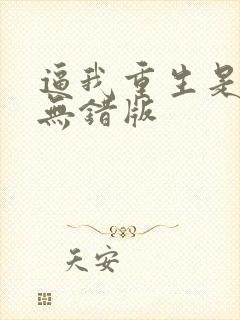 逼我重生是
無錯版
天安